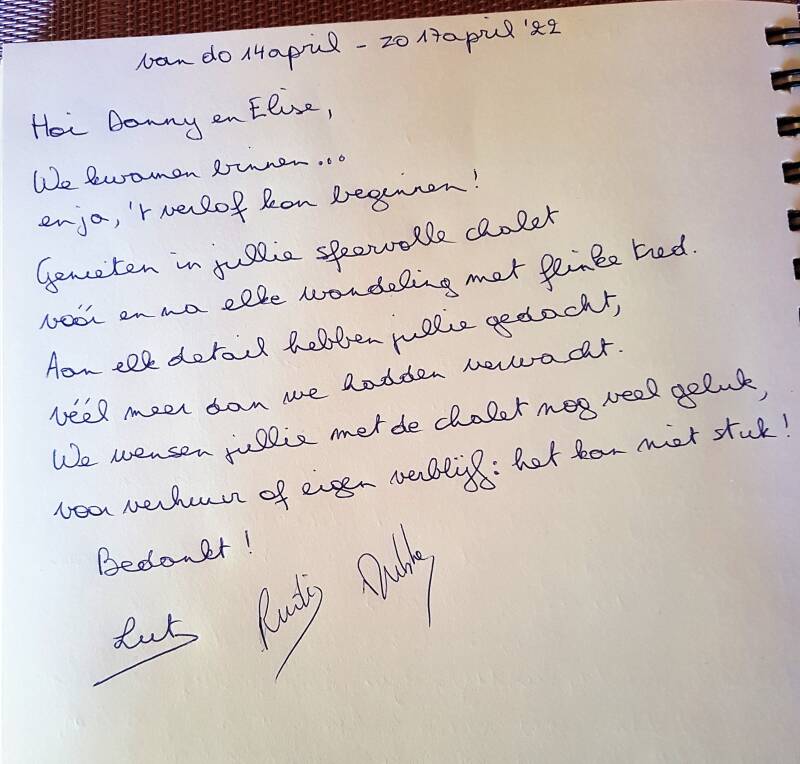 van do 14 april - zo 17 april '22
Hoi Danny en Elise,
We kwamen binnen...
en ja, 't verlof kon beginnen!
Genieten in jullie sfeervolle chalet
vóór en na elke wandeling met flinke tred.
Aan elk detail hebben jullie gedacht,
véél meer dan we hadden verwacht.
We wensen jullie met de chalet nog veel geluk,
voor verhuur of eigen verblijf: het kan niet stuk!
Bedankt!
Lut